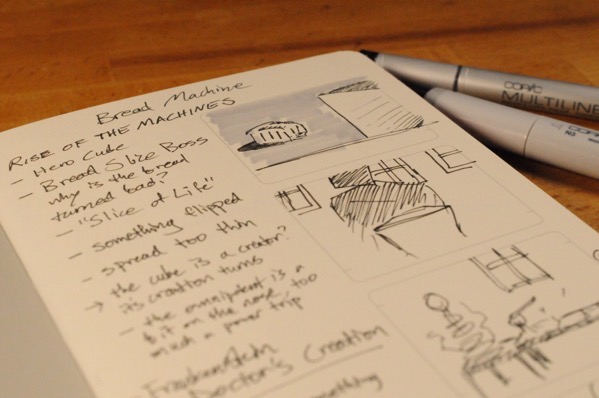 Bread Machine
RISE OF THE MACHINES
- Hero Cube
- Bread Slice Boss
why is the bread
turned bad?
- "Slice of Life"
- something flipped
- spread too thin
→ the cube is a creator?
its creation turns
- the omnipotent is a
bit on the nose, too
much a power trip
Frankenstein
Doctor's Creation
something
COPIC
MULTILINE
COPIC